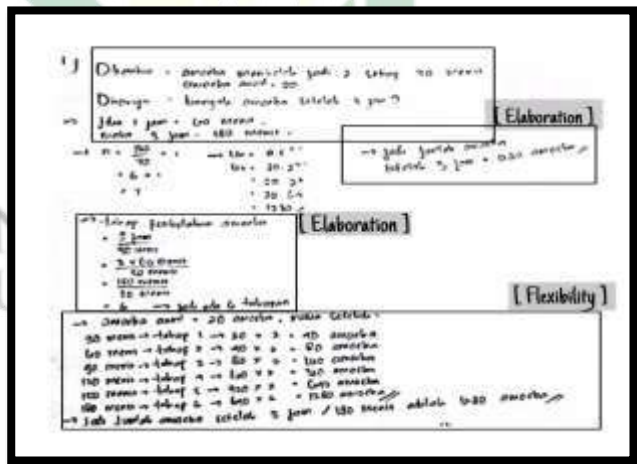 1) Diketahui = amoeba membelah jadi 2 setiap 30 menit
amoeba awal = 20
Ditanya = banyak amoeba setelah 3 jam ?
⇒ Jika 1 jam = 60 menit.
maka 3 jam = 180 menit.
[ Elaboration ]
→ n = 180/30 + 1
= 6 + 1
= 7
→ jadi jumlah amoeba
setelah 3 jam = 1280 amoeba
= 20 .
= 1280
→ tahap pembelahan amoeba
[ Elaboration ]
= 3 jam / 30 menit
= 3 x 60 menit / 30 menit
= 180 menit / 30 menit
= 6 → jadi ada 6 tahapan
[ Flexibility ]
→ amoeba awal = 20 amoeba, maka setelah :
30 menit → tahap 1 → 20 x 2 = 40 amoeba
60 menit → tahap 2 → 40 x 2 = 80 amoeba
90 menit → tahap 3 → 80 x 2 = 160 amoeba
120 menit → tahap 4 → 160 x 2 = 320 amoeba
150 menit → tahap 5 → 320 x 2 = 640 amoeba
180 menit → tahap 6 → 640 x 2 = 1280 amoeba
→ Jadi jumlah amoeba setelah 3 jam / 180 menit adalah 1280 amoeba